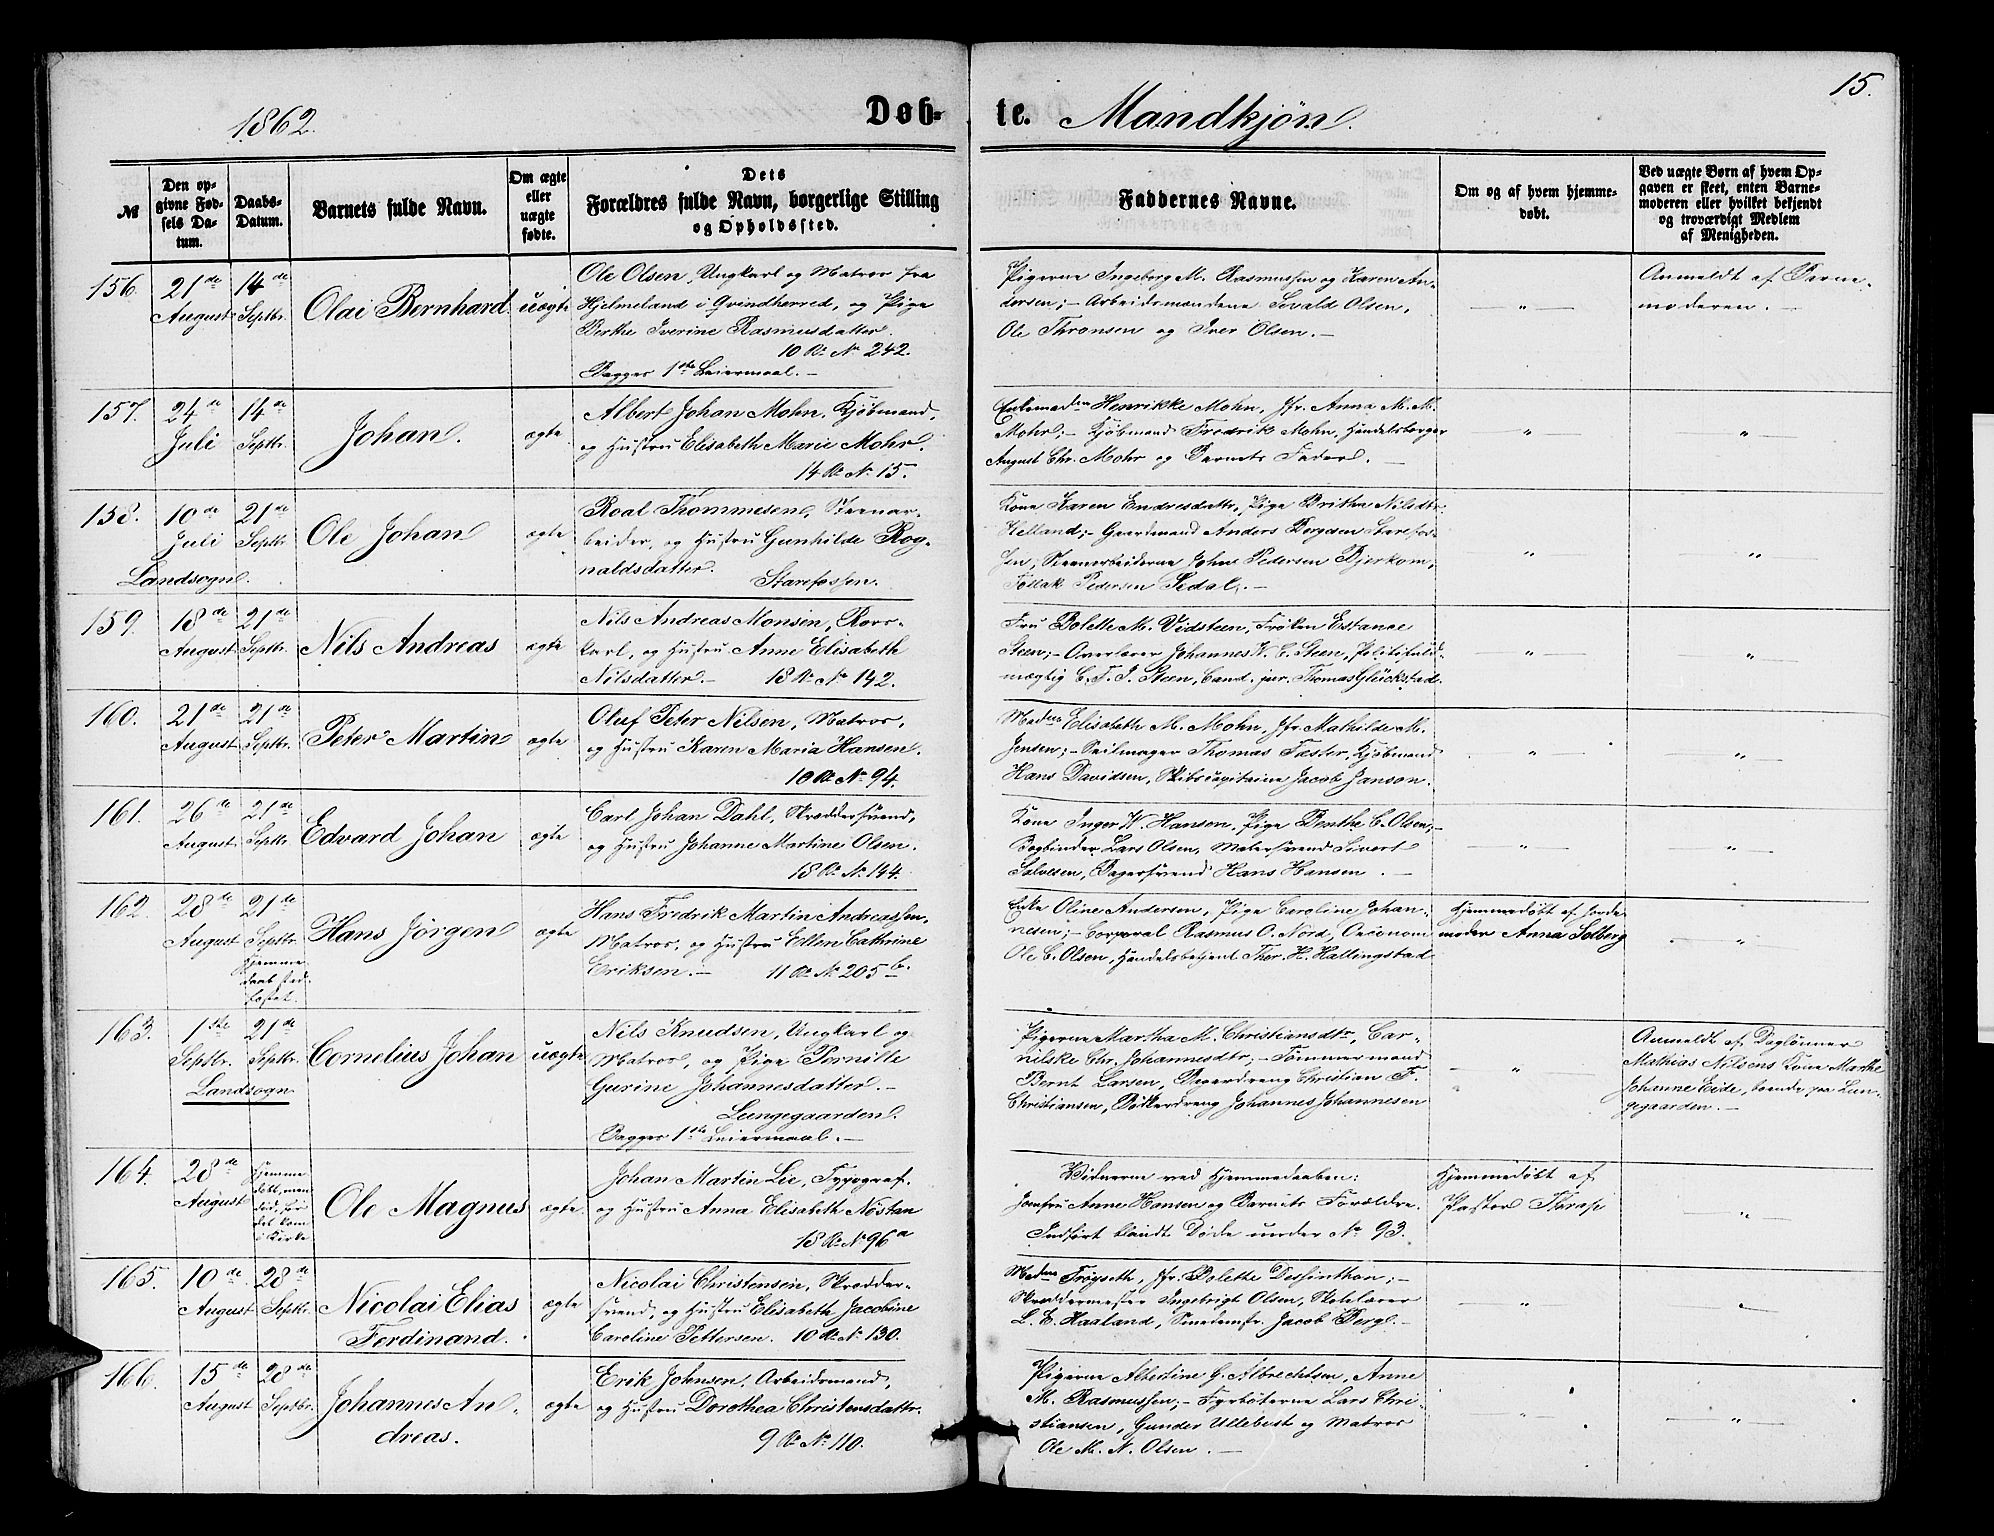 15.
1862.
Døb-te. Mandkjøn.
№
Den opgivne Fødsels Datum.
Daabs-Datum.
Barnets fulde Navn.
Om ægte eller uægte fødte.
Dets Forældres fulde Navn, borgerlige Stilling og Opholdssted.
Faddernes Navne.
Om og af hvem hjemmedøbt.
Ved uægte Børn af hvem Opgaven er skeet, enten Barnemoderen eller hvilket bekjendt og troværdigt Medlem af Menigheden.
156. 21de August 14de Septbr. Olai Bernhard uægte
Ole Olsen, Ungkarl og Matros fra
Hjelmeland i Qvindherred, og Pige
Berthe Iverine Rasmusdatter.
10 R. No 242.
Begges 1ste Leiermaal.-
Pigerne Ingeborg M. Rasmussen og Karen An-
dersen;- Arbeidsmændene Sevald Olsen,
Ole Thronsen og Iver Olsen.-
Anmeldt af Barne-
moderen.-
157. 24de Juli 14de Septbr. Johan. ægte
Albert Johan Mohn, Kjøbmand,
og Hustru Elisabeth Marie Mohr.
14 R. No 15.
Enkemadm Henrikke Mohn, Jfr. Anna M. M.
Mohr;- Kjøbmand Fredrik Mohn, Handelsborger
August Chr. Mohr og Barnets Fader.-
158. 10de Juli 21de Septbr. Ole Johan ægte
Landsogn.
Roal Thommesen, Steenar-
beider, og Hustru Gunhilde Rog-
naldsdatter.
Starefossen.
Kone Karen Endresdattr, Pige Britha Nilsdtr
Helland;- Gaardmand Anders Børgesen Starefos-
sen, Steenarbeiderne Johns Pedersen Bjerkom,
Pedersen Sedal.-
159. 18de August 21de Septbr. Nils Andreas ægte
Nils Andreas Monsen, Rors-
karl, og Hustru Anne Elisabeth
Nilsdatter.- 18 R. No 142.
Fru Bolette M. Vidsteen, Frøken Estance
Steen;- Overlærer Johannes W. C. Steen, Politifuld-
mægtig C. F. J. Steen, Cand. jur. Thomas Glückstad.
160. 21de August 21de Septbr. Peter Martin ægte
Oluf Peter Nilsen, Matros,
og Hustru Karen Maria Hansen.
10 R. No 94.
Madme Elisabeth M. Mohn, Jfr. Mathilde M.
Jensen;- Seilmager Thomas Fæster, Kjøbmand
Hans Davidsen, Skibscapitaine Jacob Janson.
161. 26de August 21de Septbr. Edvard Johan ægte
Carl Johan Dahl, Skræddersvend,
og Hustru Johanne Martine Olsen.
18 R. No 144.
Kone Inger W. Hansen, Pige Benthe C. Olsen;-
Bogbinder Lars Olsen, Malersvend Sivert
Salvesen, Bagersvend Hans Hansen.-
162. 28de August 21de Septbr. Hjemmedaab stadfæstet. Hans Jørgen ægte
Hans Fredrik Martin Andreassen,
Matros, og Hustru Ellen Cathrine
Eriksen.- 11 R. No 205 b.
Enke Oline Andersen, Pige Caroline Johan-
nesen;- Corporal Rasmus O. Nord, Oeconom
Ole C. Olsen, Handelsbetjent Ther. H. Hallingstad
Hjemmedøbt af Jorde-
moder Anna Solberg
163. 1ste Septbr. 21de Septbr. Cornelius Johan uægte
Landsogn
Nils Knudsen, Ungkarl og
Matros, og Pige Pernille
Gurine Johannesdatter.-
Lungegaarden.
Begges 1ste Leiermaal.-
Pigerne Martha M. Christiansdtr, Cor-
nilske Chr. Johannesdtr;- Tømmermand
Bernt Larsen, Bagerdreng Christian F.
Christiansen, Bødkerdreng Johannes Johannesen
Anmeldt af Daglønner
Mathias Nilsens Kone Marthe
Johanne Eide, boende paa Lun-
gegaarden.-
164. 28de August Hjemmedøbt, men død, før det kom i Kirke Ole Magnus ægte
Johan Martin Lie, Typograf.
og Hustru Anna Elisabeth Nøstan
15 R. No 96 a
Vidnerne ved Hjemmedaaben:
Jomfru Anne Hansen og Barnets Forældre.
Indført blandt Døde under No 93.
Hjemmedøbt af
Pastor Thrap
165. 10de August 28de Septbr. Nicolai Elias
Ferdinand. ægte
Nicolai Christensen, Skrædder-
svend, og Hustru Elisabeth Jacobine
Caroline Pettersen. 10 R. No 130.
Madme Frøyseth, Jfr. Bolette Dessinthon;-
Skræddermester Ingebrigt Olsen, Skolelærer
L. E. Haaland, Smedemstr. Jacob Berg.-
166. 15de August 28de Septbr. Johannes An-
dreas. ægte
Erik Johnsen, Arbeidsmand,
og Hustru Dorothea Christensdattr.
9 R. No 110.
Pigerne Albertine G. Albrechtsen, Anne
M. Rasmussen,- Fyrbøterne Lars Chri-
stiansen, Gunder Ullebust og Matros
Ole M. N. Olsen.-